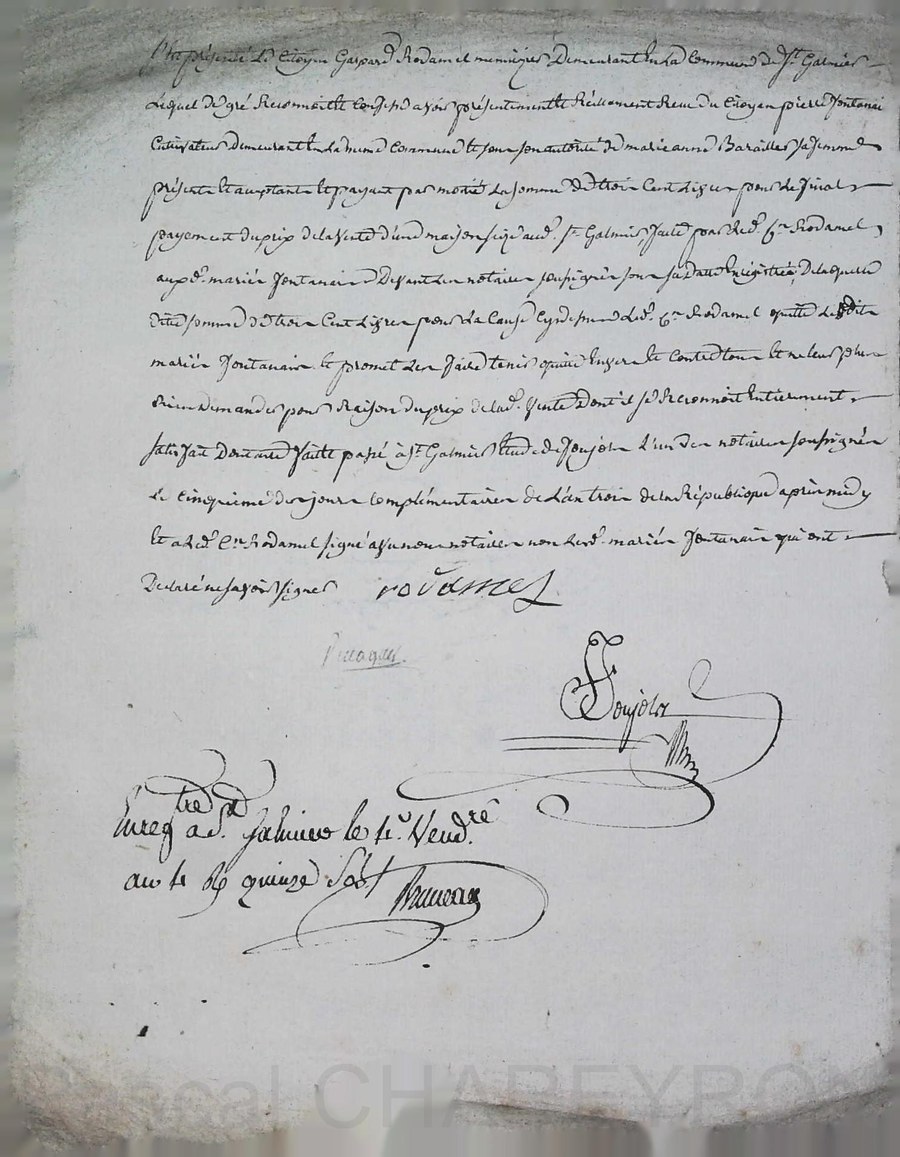 présent Le Citoyen Gaspard Rodamel menuizier Demeurant En La Commune de St. Galmier
Lequel de gré Reconnoit Et Confesse avoir présentement Et Réellement Reçu du Citoyen pierre fontanai
Cultivateur Demeurant En La même Commune Et sous son autorité de marieanne Barailler sa femme
présente Et acceptante Et payant par moitié La somme De trois Cent Livres pour Le final
payement du prix de la Vente d'une maison size aud. St. Galmier, faite par Led. Cn. Rodamel
auxd. mariés fontanai Devant Les notaires soussignés sous sa datte Enregistrée, De laquelle
ditte somme De trois Cent Livres pour La Cause Cydessus Led. Cn. Rodamel quitte Lesdits
mariés fontanai Et promet Les faire tenir quitte Envers Et Contre tous Et ne leur plus
Rien Demander pour Raison du prix de lad. Vente Dont il se Reconnoit Entierement
satisfait Dont acte faitte passé à St. Galmier Etude de foujols L'un Des notaires soussignés
Le Cinquieme des jours Complémentaires de L'an trois de la République après midy
Et a Led. Cn. Rodamel signé avec nous notaires non Lesd. mariés fontanai qui ont
Declaré ne savoir signer rodamel
foujols
Enregtré à St. Galmier le 4e. Vendre.
an 4 R quinze s
Pascal CHAREYRON